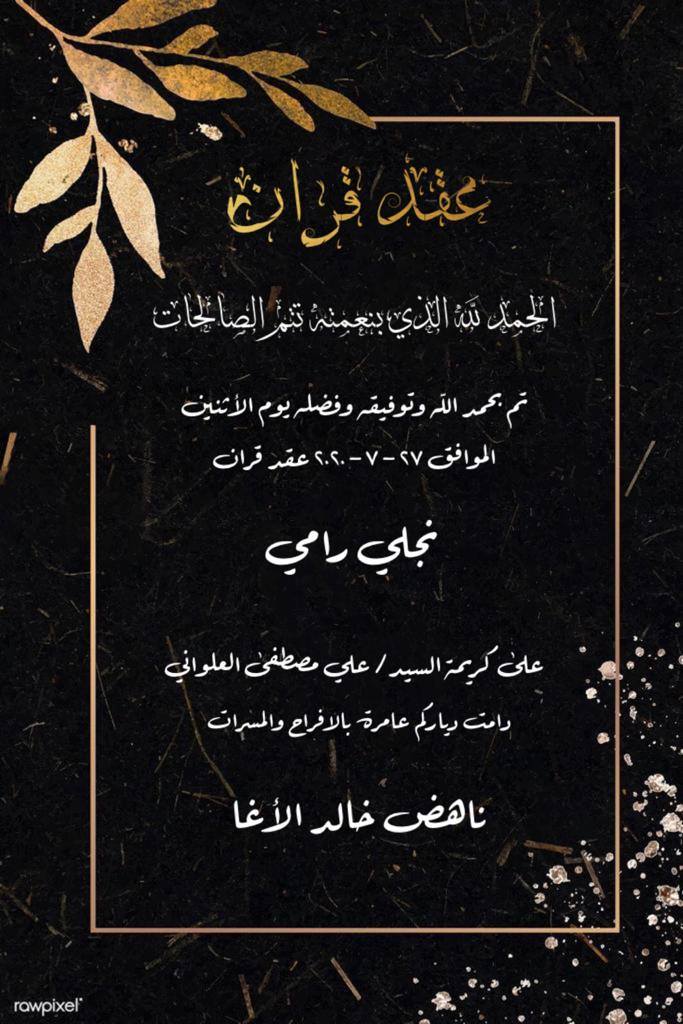 عقد قران
الحمد لله الذي بنعمته تتم الصالحات
تم بحمد الله وتوفيقه وفضله يوم الأثنين
الموافق ٢٧-٧-٢٠٢٠ عقد قران
نجلي رامي
على كريمة السيد / علي مصطفى العلواني
دامت دياركم عامرة بالافراح والمسرات
ناهض خالد الأغا
rawpixel